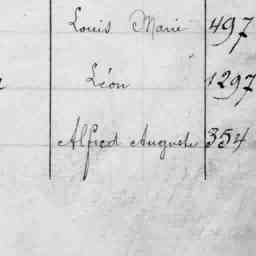 Louis Marie 497
Léon 1297
Alfred Auguste 354